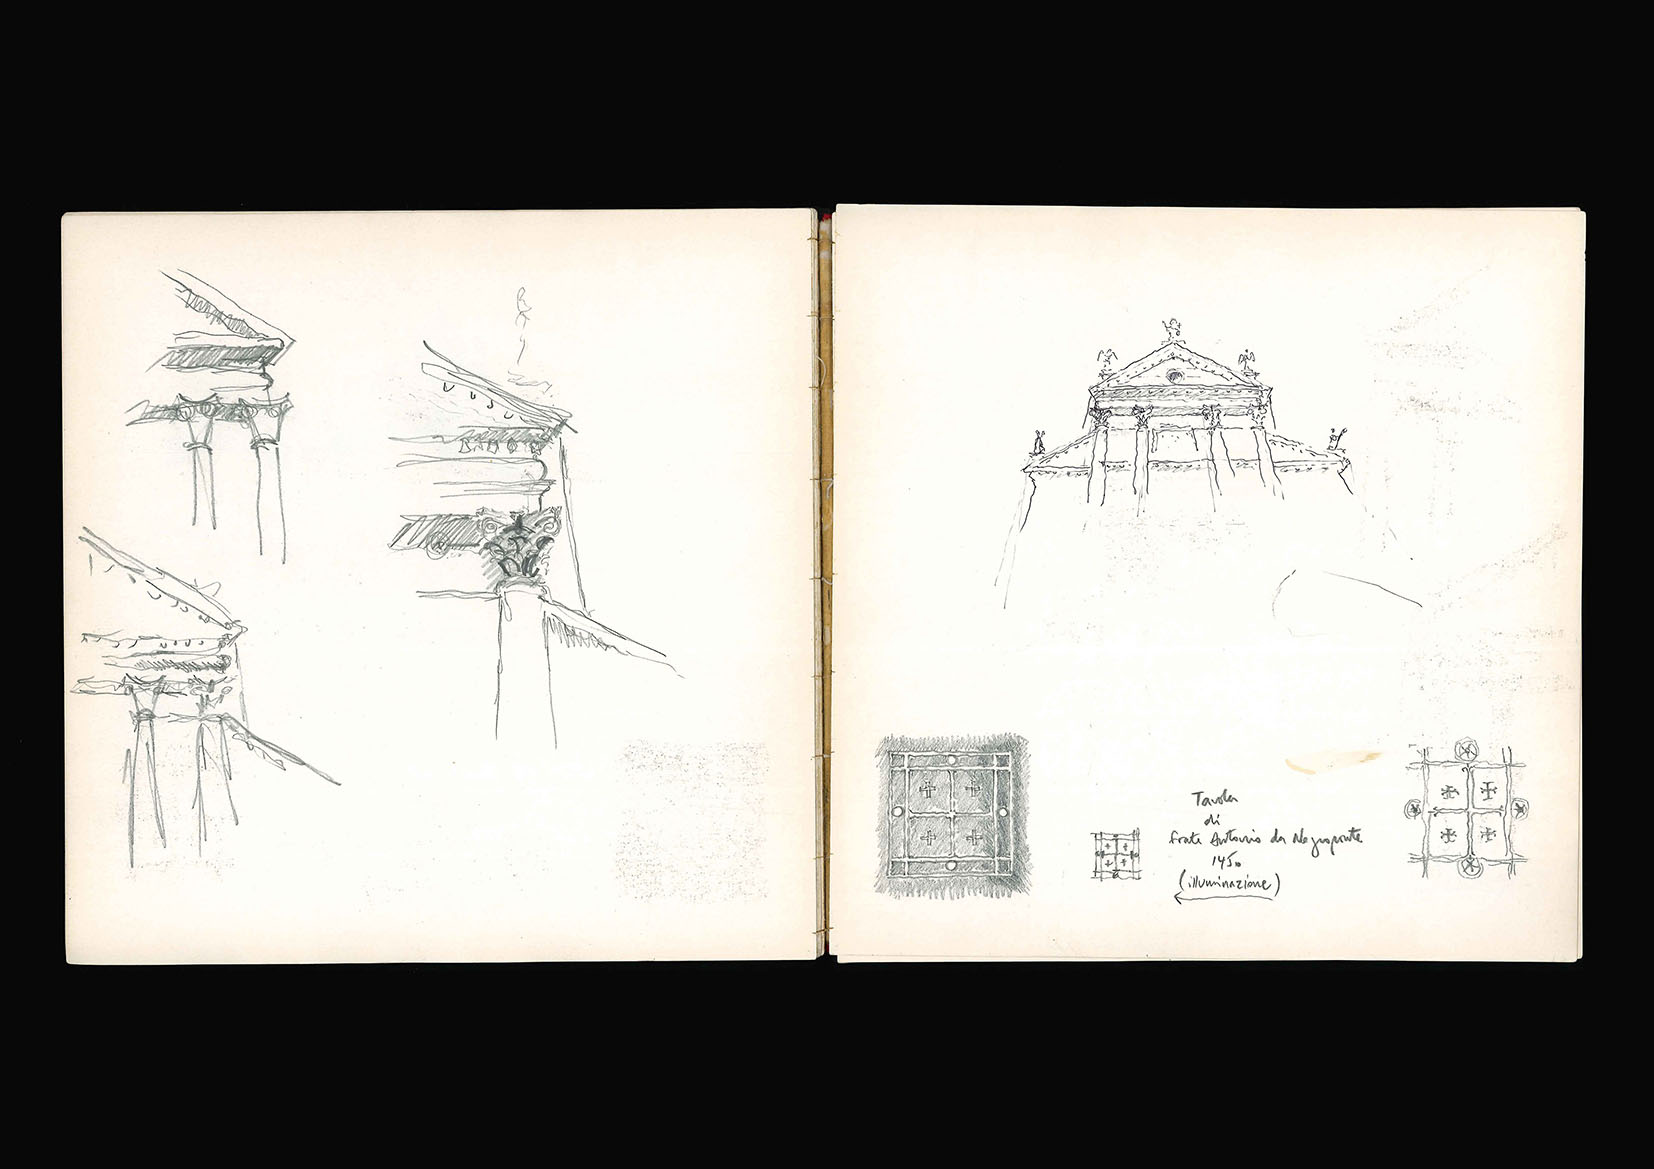 Tavola
di
frate Antonio da Negroponte
1450
(illuminazione)